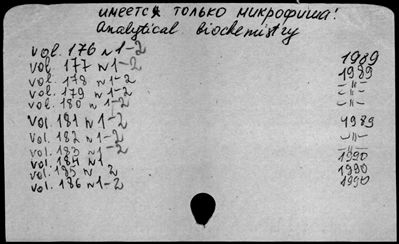 имеется только микрофиша!
Analytical biochemistry
vol. 176 N 1-2 1989
vol. 177 N 1-2 1989
vol. 178 N 1-2 -"-
vol. 179 N 1-2 -"-
vol. 180 N 1-2 -"-
vol. 181 N 1-2 1989
vol. 182 N 1-2 -"-
vol. 183 N 1-2 -"-
vol. 184 N 1 1990
vol. 185 N 2 1990
vol. 186 N 1-2 1990